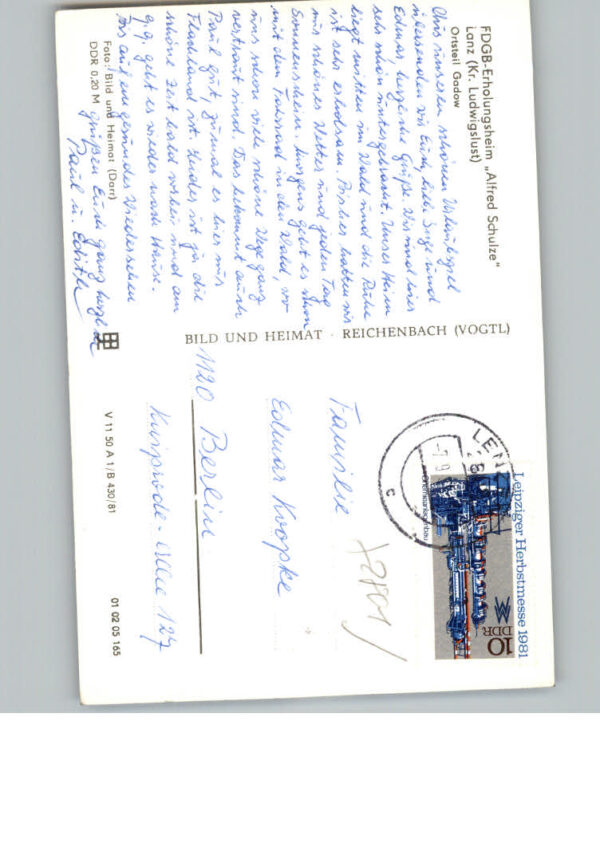 FDGB-Erholungsheim „Alfred Schulze"
Lanz (Kr. Ludwigslust)
Ortsteil Gadow
Aus unseren schönen Urlaubsziel
übersenden wir Euch, liebe Inge und
Edmar, herzliche Grüße. Wir sind hier
sehr schön untergebracht. Unser Heim
liegt mitten im Wald und die Ruhe
ist sehr erholsam. Bisher hatten wir
nur schönes Wetter und jeden Tag
Sonnenschein. Morgens geht es schon
mit dem Fahrrad in den Wald, wo
uns schon viele schöne Wege ganz
vertraut sind. Das bekommt auch
Paul gut, zumal es hier nur
Flachland ist. Leider ist ja die
schöne Zeit bald vorbei und am
9.9. geht es wieder nach Hause.
Bis auf ein gesundes Wiedersehen
grüßen Euch ganz herzlich
Paul u. Edith
Foto: Bild und Heimat (Darr)
DDR 0,20 M
BILD UND HEIMAT · REICHENBACH (VOGTL)
V 11 50 A 1/B 430/81
01 02 05 165
LEN
-7.9
c
Leipziger Herbstmesse 1981
10
DDR
Familie
Edmar Koopke
1120 Berlin
Kniprode-Allee 127